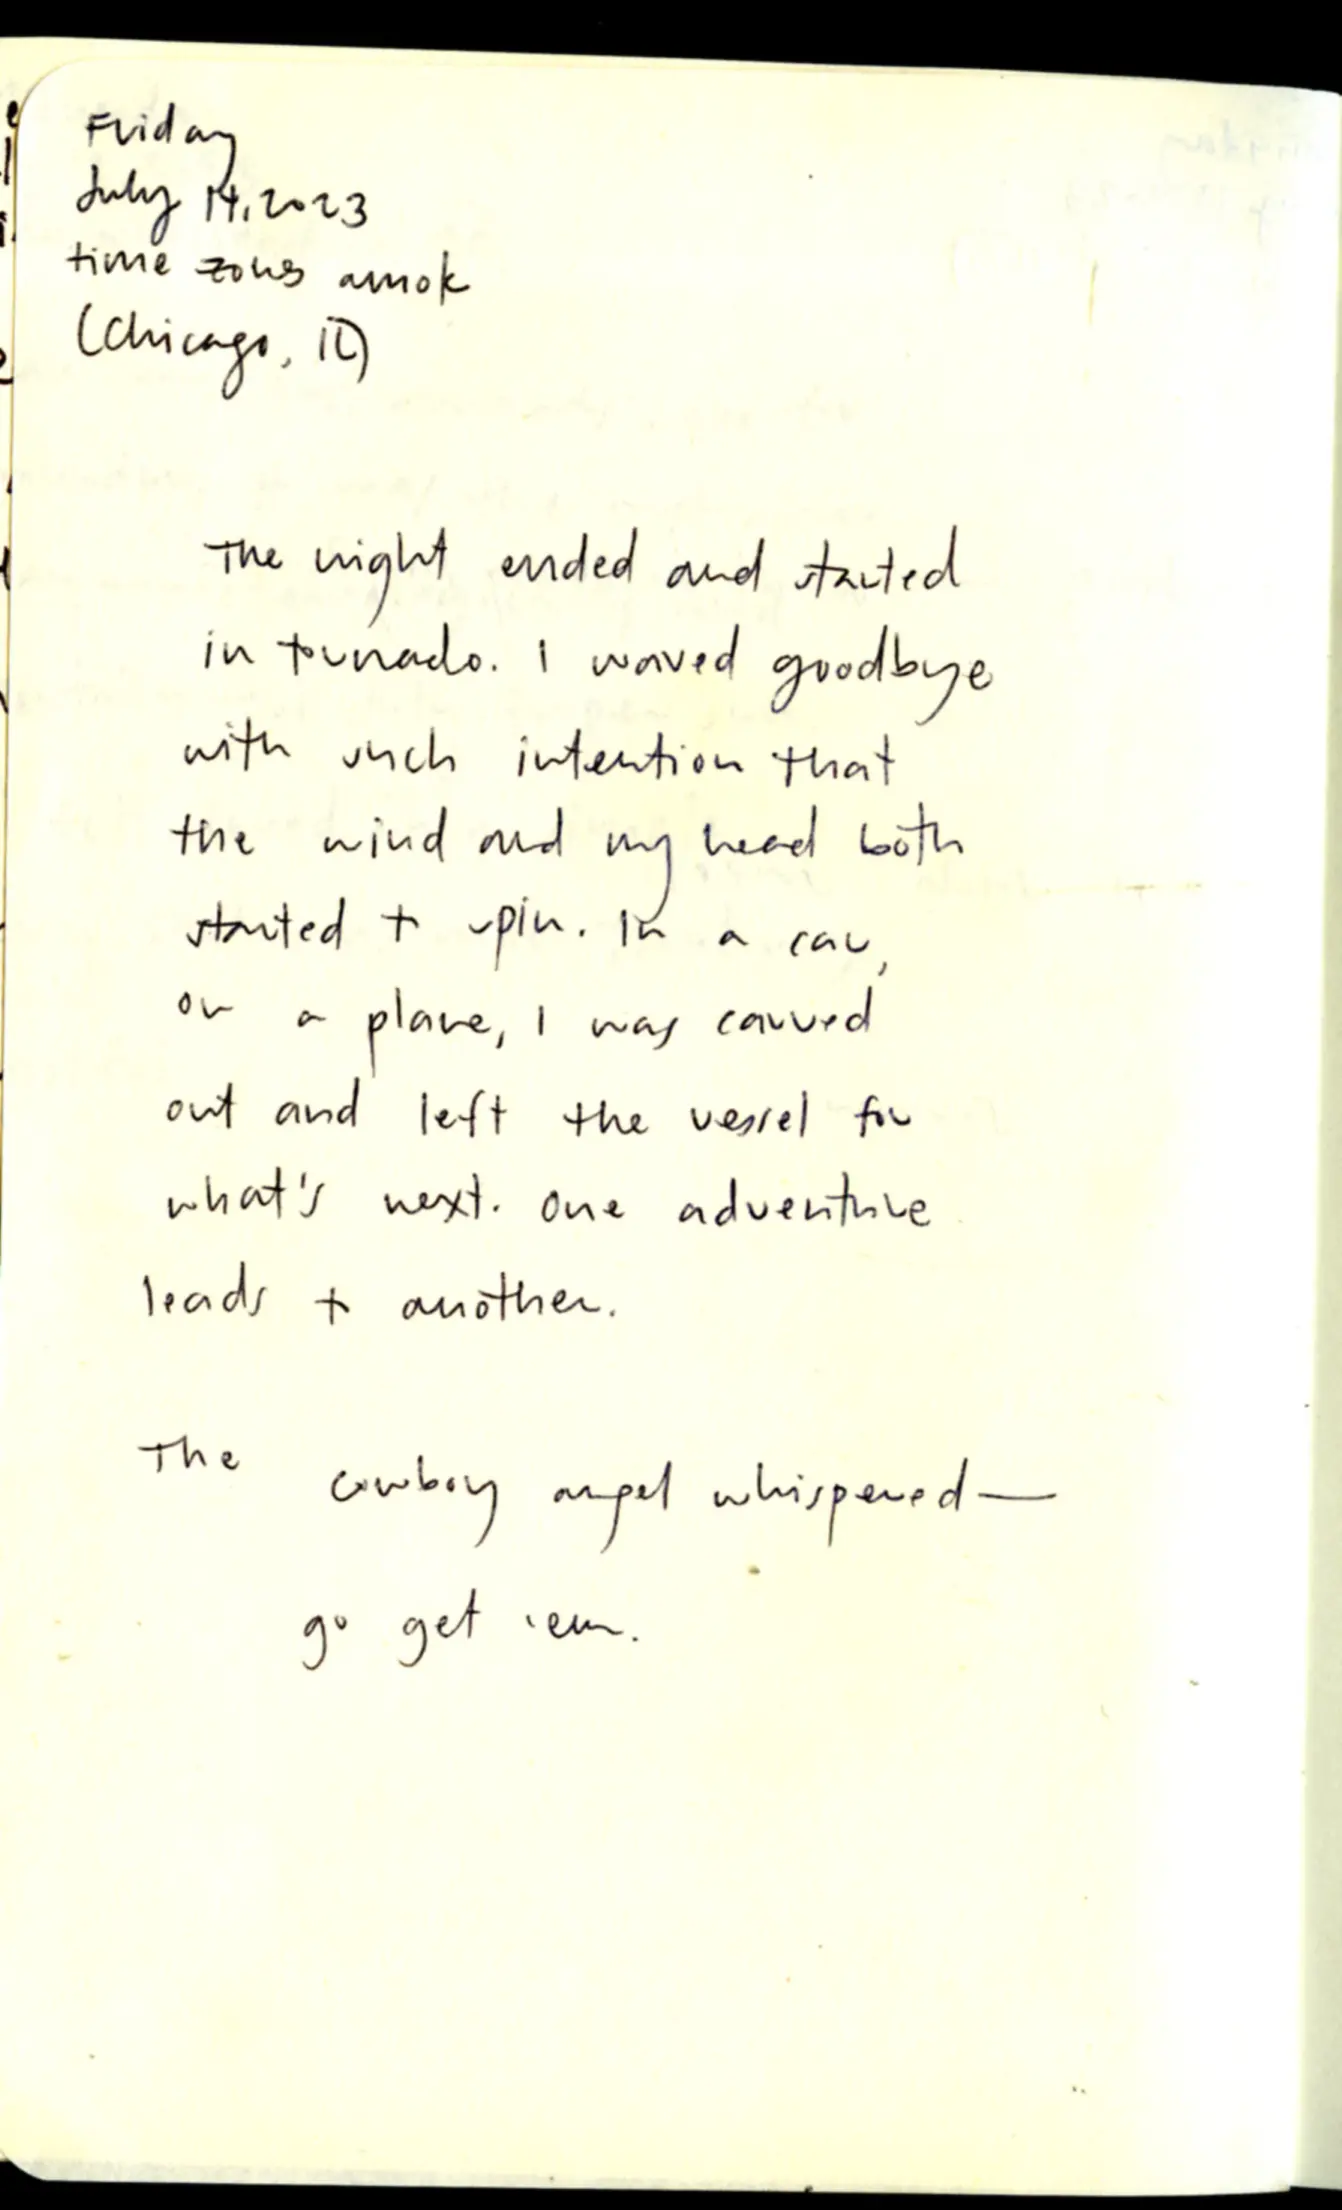 Friday
July 14, 2023
time zones amok
(Chicago, IL)
The night ended and started
in tornado. I waved goodbye
with such intention that
the wind and my head both
started to spin. In a car,
on a plane, I was carved
out and left the vessel for
what's next. One adventure
leads to another.
The cowboy angel whispered—
go get 'em.